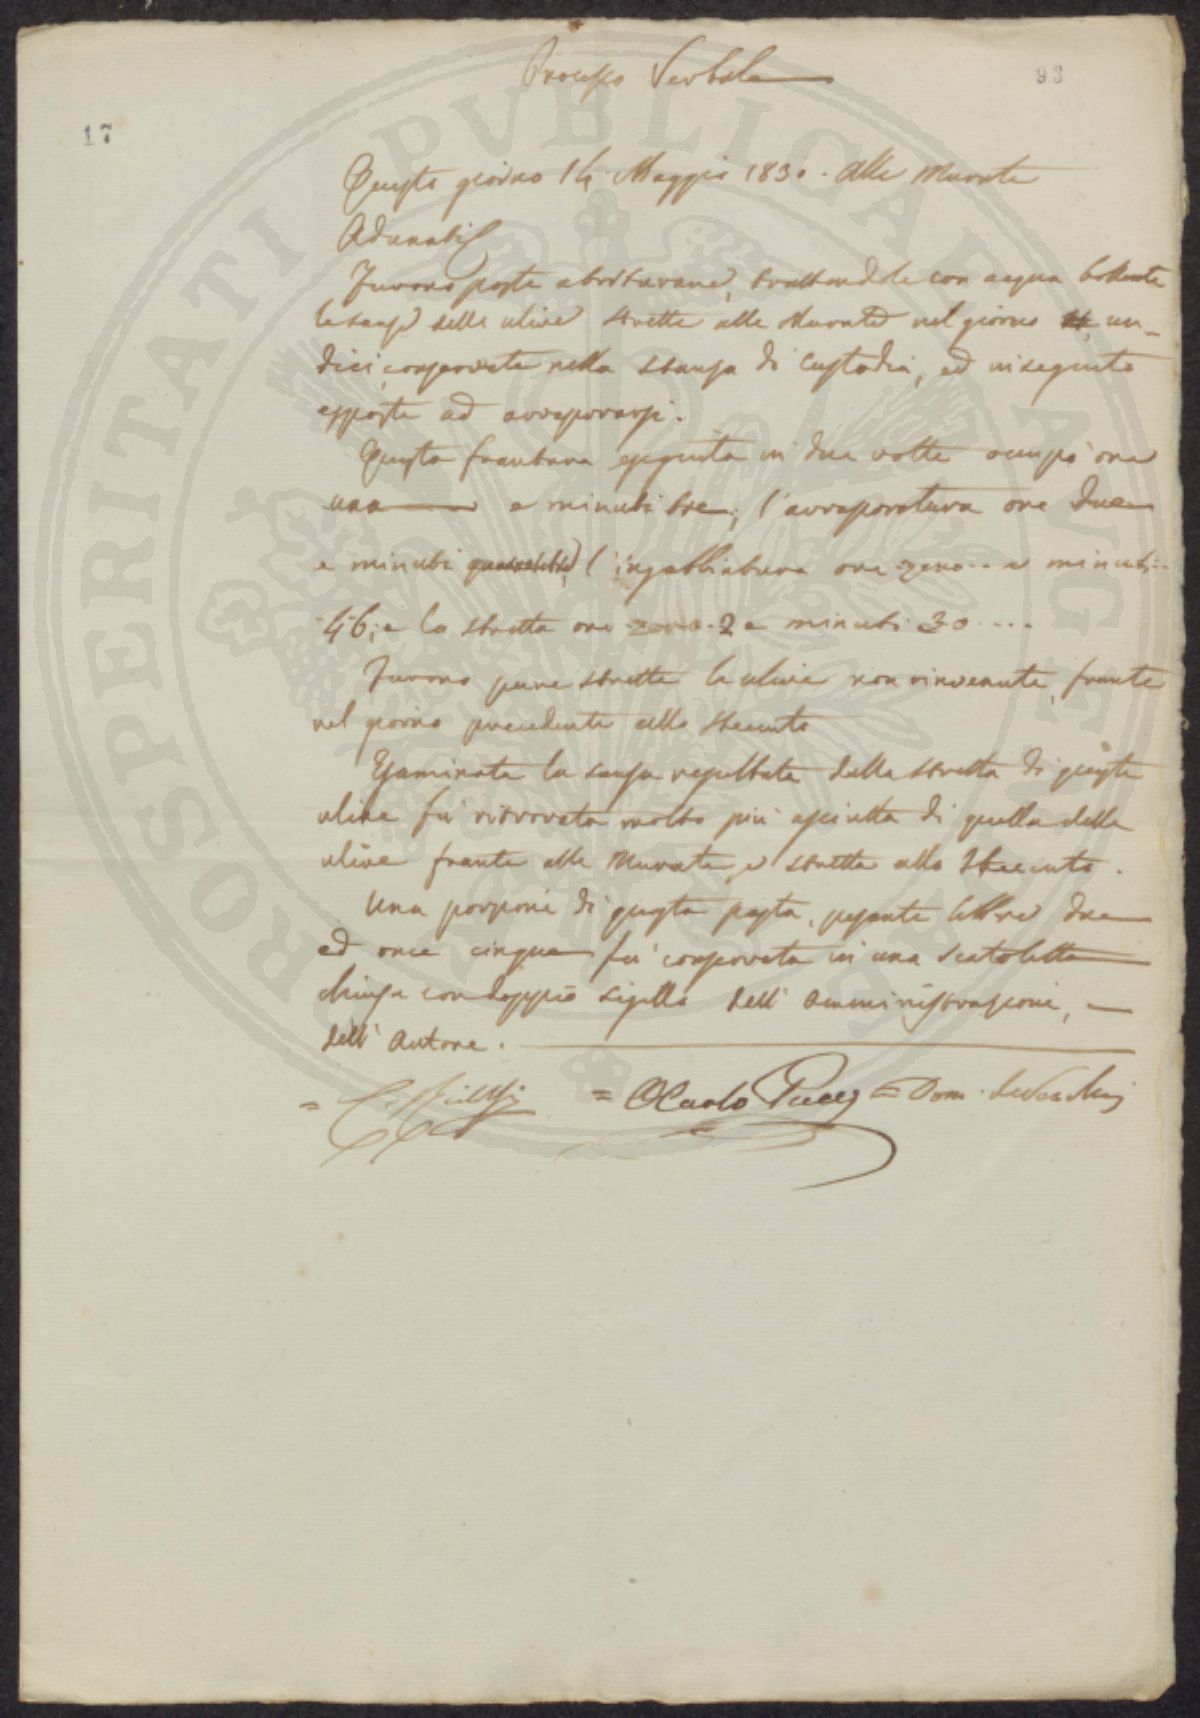 Processo Verbale
93
17
Questo giorno 14 Maggio 1830. alle Murate
Adunatisi
Furono poste a triturare, trattandole con acqua bollente
le sanse delle ulive strette alle Murate nel giorno un-
dici, conservate nella stanza di Custodia, ed in seguito
esposte ad
Questa frantura eseguita in due volte occupò ore
una e minuti tre; l'
ore due
e minuti l'ingabbiatura ore zero e minuti
46; e la stretta ore 2 e minuti 30
Furono pure strette le ulive non rinvenute, frante
nel giorno precedente allo Steccuto
Esaminata la sansa resultata dalla stretta di queste
ulive fù ritrovata molto più asciutta di quella delle
ulive frante alle Murate, e strette allo Steccuto.
Una porzione di questa pasta, pesante libbre due
ed once cinque fù conservata in una scatoletta
chiusa con doppio sigillo dell'Amministrazione,
dell'Autore.
= = Carlo Pucci = Dom.
PROSPERITATI PUBLICAE AUGENDAE